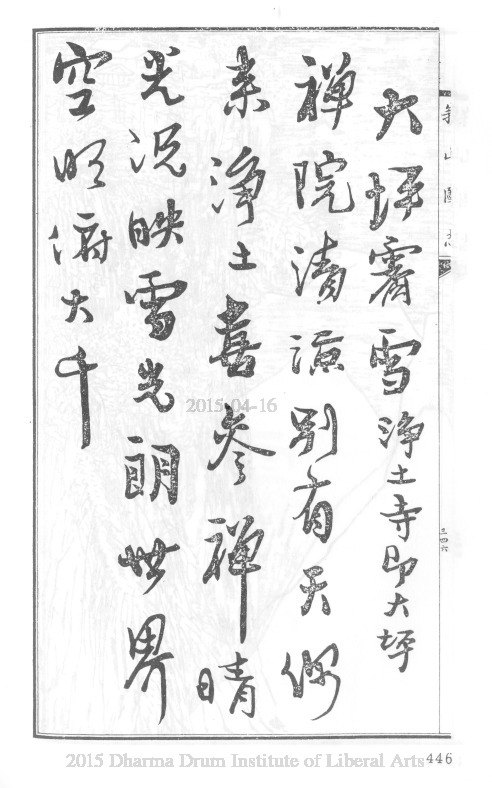 大坪霽雪 淨土寺即大坪
禪院清涼別有天偶
來淨土喜參禪晴
光況映雪光朗世界
空明俯大千
三四六
2015-04-16
2015 Dharma Drum Institute of Liberal Arts
446